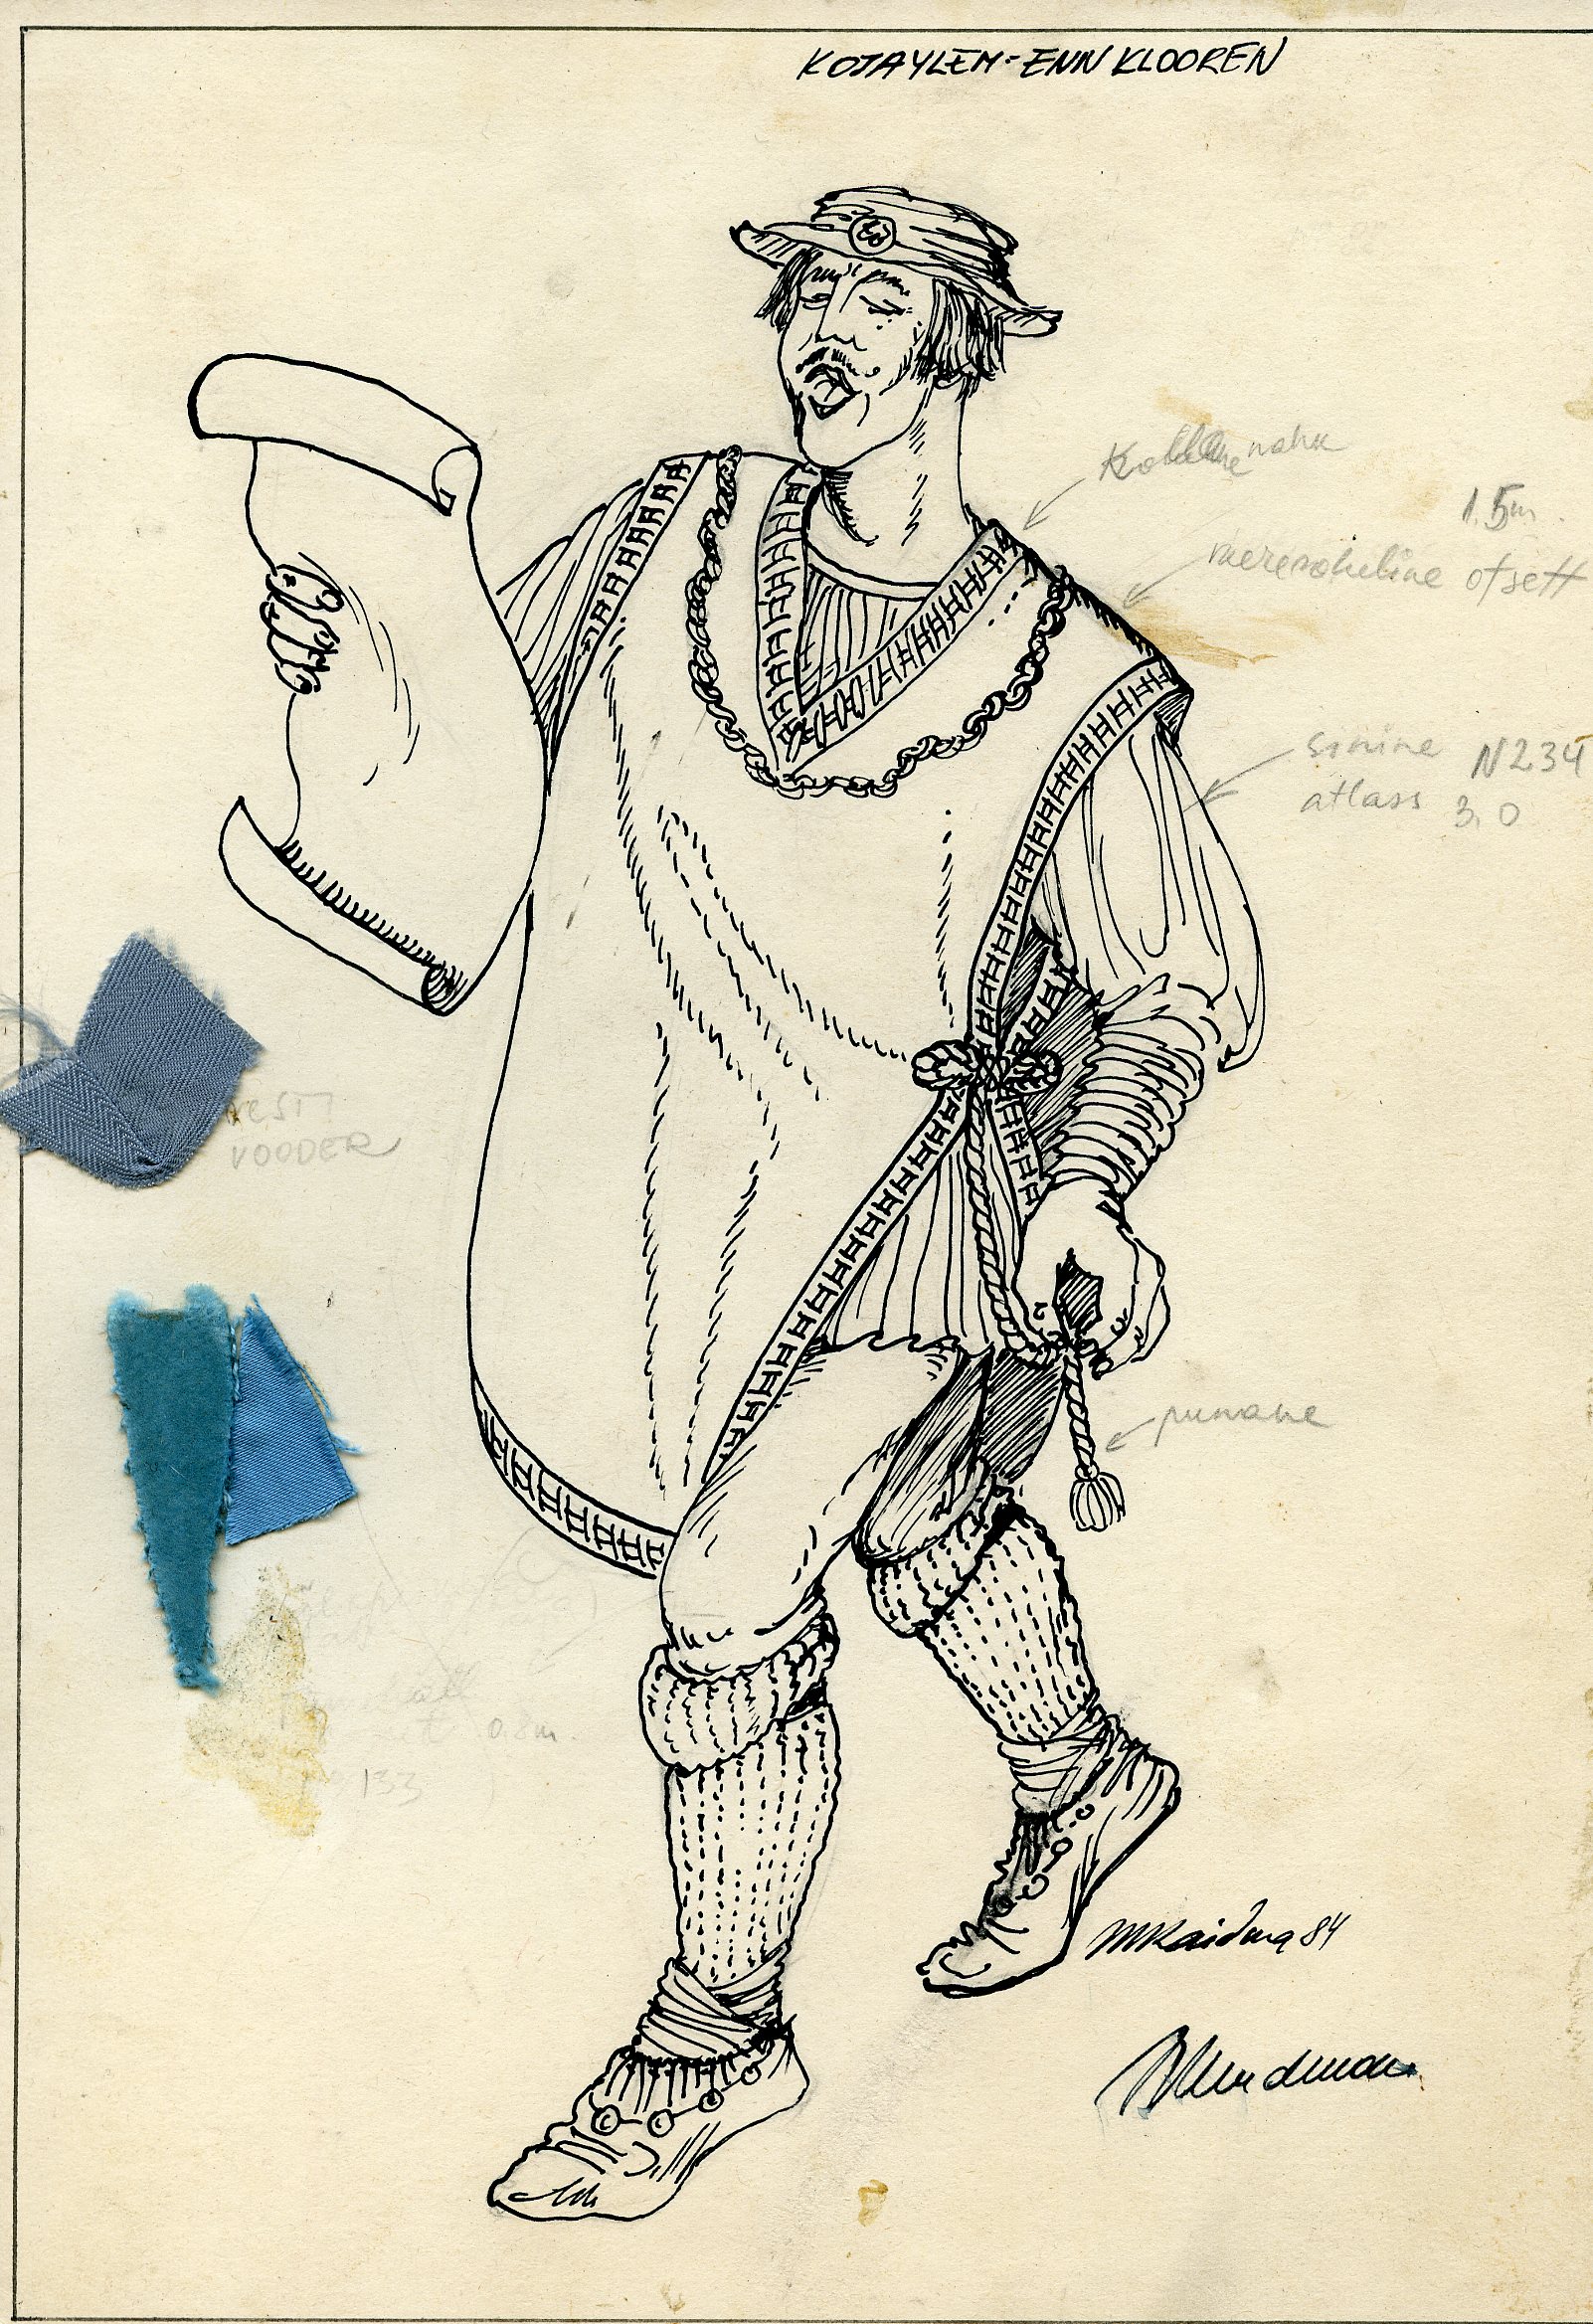 KOJAYLEM - ENN KLOOREN
nahk
1.5m.
mereroheline ofsett
sinine N234
atlass 3.0
VEST
VOODER
punane
0.8m.
133
MKaidma 84